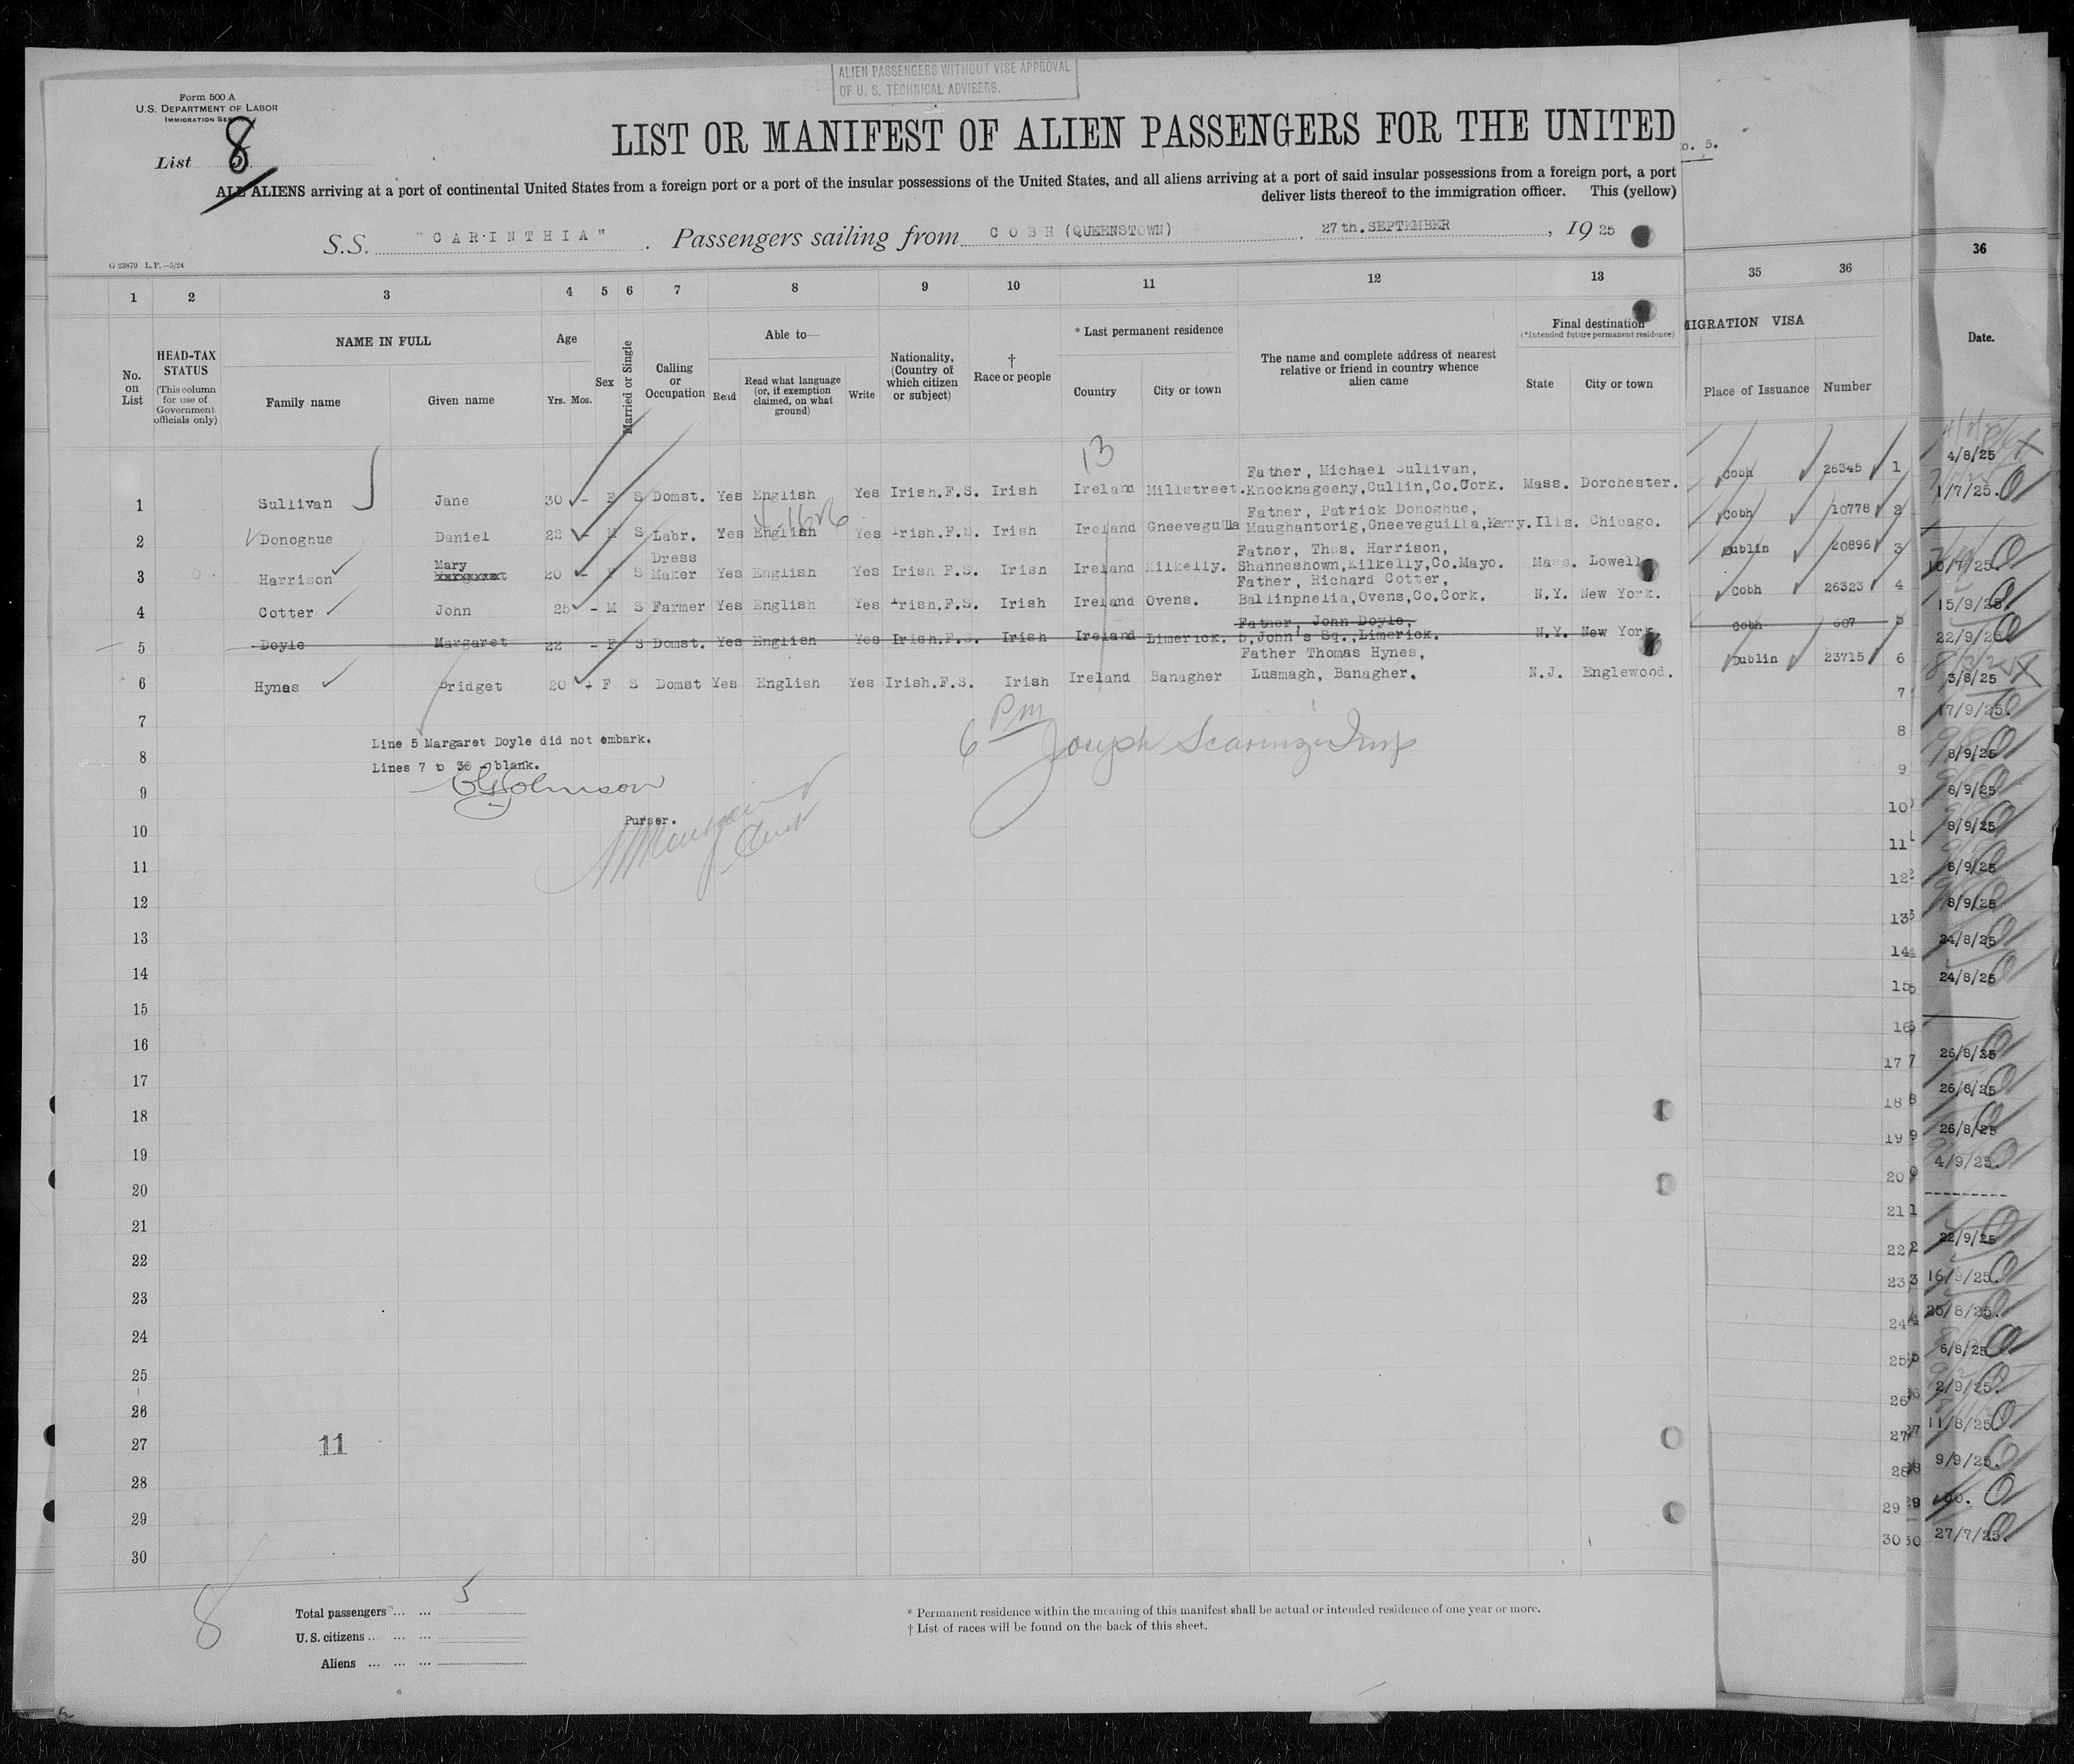 ALIEN PASSENGERS WITHOUT VISE APPROVAL
OF U. S. TECHNICAL ADVISERS.
Form 500 A
U.S. DEPARTMENT OF LABOR
IMMIGRATION
List 8
LIST OR MANIFEST OF ALIEN PASSENGERS FOR THE UNITED
o. 5.
ALL ALIENS arriving at a port of continental United States from a foreign port or a port of the insular possessions of the United States, and all aliens arriving at a port of said insular possessions from a foreign port, a port
deliver lists thereof to the immigration officer. This (yellow)
S.S. "CARINTHIA". Passengers sailing from COBH (QUEENSTOWN), 27th. SEPTEMBER, 1925
G 23879 L.P.—5/24
1 2 3 4 5 6 7 8 9 10 11 12 13 35 36 36
No. on List
HEAD-TAX STATUS
(This column for use of Government officials only)
NAME IN FULL
Family name Given name
Age
Yrs. Mos.
Sex
Married or Single
Calling or Occupation
Able to—
Read Read what language (or, if exemption claimed, on what ground) Write
Nationality, (Country of which citizen or subject)
† Race or people
* Last permanent residence
Country City or town
The name and complete address of nearest relative or friend in country whence alien came
Final destination
(*Intended future permanent residence)
State City or town
MIGRATION VISA
Place of Issuance Number
Date.
13
Father, Michael Sullivan,
1 Sullivan Jane 30 - F S Domst. Yes English Yes Irish.F.S. Irish Ireland Millstreet. Knocknageehy,Cullin,Co.Cork. Mass. Dorchester. Cobh 26345 1
Father, Patrick Donoghue,
2 Donoghue Daniel 22 - M S Labr. Yes English Yes Irish.F.S. Irish Ireland Gneeveguilla Maughantorig,Gneeveguilla,Kerry. Ills. Chicago. Cobh 10778 2
Mary Dress Father, Thos. Harrison,
3 Harrison 20 - F S Maker Yes English Yes Irish F.S. Irish Ireland Kilkelly. Shanneshown,Kilkelly,Co.Mayo. Mass. Lowell Dublin 20896 3
Father, Richard Cotter,
4 Cotter John 25 - M S Farmer Yes English Yes Irish.F.S. Irish Ireland Ovens. Ballinpnelia,Ovens,Co.Cork. N.Y. New York. Cobh 26323 4
Father, John Doyle,
5 Doyle Margaret 22 - F S Domst. Yes English Yes Irish.F.S. Irish Ireland Limerick. 5,John's Sq.,Limerick. N.Y. New York. Cobh 607 5
Father Thomas Hynes,
6 Hynes Bridget 20 F S Domst Yes English Yes Irish.F.S. Irish Ireland Banagher Lusmagh, Banagher. N.J. Englewood. Dublin 23715 6
7
8
9
10
11
12
13
14
15
16
17
18
19
20
21
22
23
24
25
26
27
28
29
30
Line 5 Margaret Doyle did not embark.
Lines 7 to 30 - blank.
Johnson
Purser.
6 Pm
Joseph Insp
7
8
9
10
11
12
13
14
15
16
17
18
19
20
21
22
23
24
25
26
27
28
29
30
4/8/25
1/7/25.
10/7/25.
15/9/25
22/9/25
3/8/25
17/9/25.
8/9/25
8/9/25
8/9/25
8/9/25
8/9/25
24/8/25
24/8/25
26/8/25
26/8/25
26/8/25
4/9/25.
22/9/25
16/9/25.
25/8/25.
6/8/25.
2/9/25.
11/8/25
9/9/25.
do.
27/7/25.
11
8
Total passengers ... ... 5
U.S. citizens ... ... ...
Aliens ... ... ...
* Permanent residence within the meaning of this manifest shall be actual or intended residence of one year or more.
† List of races will be found on the back of this sheet.